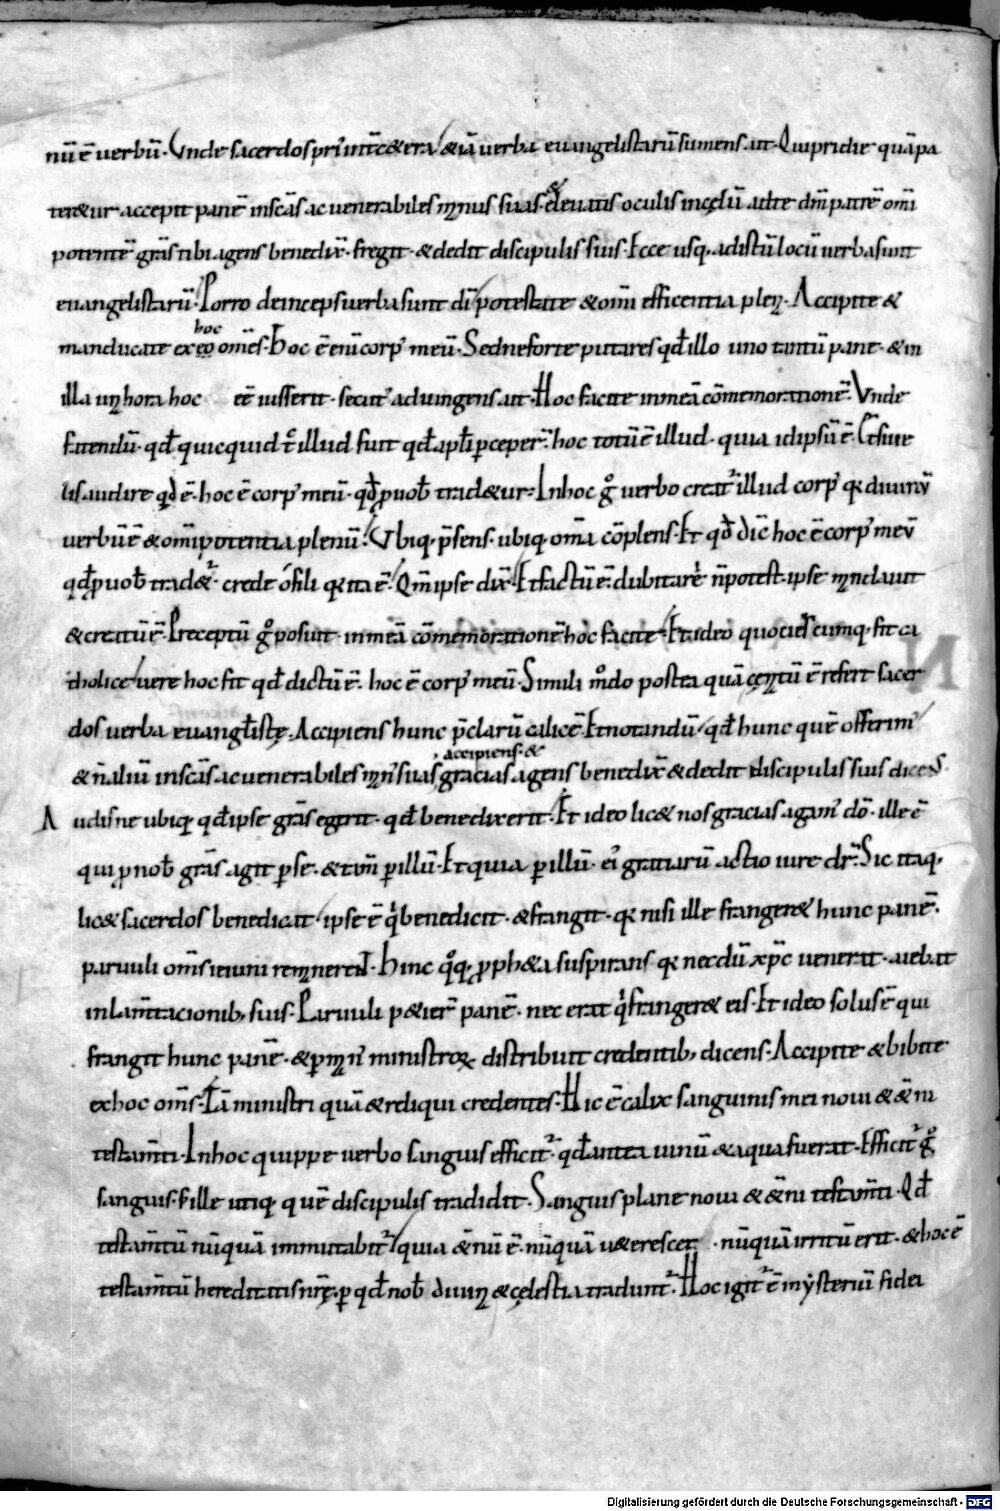 nū ē uerbū. Vnde sacerdos pri᷑ int̄c&era / &iā uerba euangelistarū sumens. ait. Qui pridie quā pa
ter&ur accepit panē in sc̄as ac uenerabiles manus suas. & eleuatis oculis in cęlū ad te dm̄ patrē om̄i
potentē gr̄as tibi agens benedix̄. fregit. & dedit discipulis suis. Ecce usq; ad istū locū uerba sunt
euangelistarū. Porro deinceps uerba sunt dī potestate & om̄i efficentia plena. Accipite &
hoc
manducate ex eo om̄es. Hoc ē eni᷑ corp᷒ meū. Sed ne forte putares qd̄ illo uno tantū pane. & in
illa una hora hoc eē iusserit. secut᷒ adiungens ait. Hoc facite in meā cōmemorationē. Vnde
fatendū. qd̄ quicquid t̄ illud fuit qd̄ apl̄i p̄ceper̄. hoc totū ē illud. quia id ipsū ē. Et si ue
lis audire qd̄ ē. hoc ē corp᷒ meū. qd̄ p̄ uob̄ trad&ur. In hoc gͦ uerbo creat᷑ illud corp᷒ qa diuinū
uerbū ē & om̄i potentia plenū. Vbiq; p̄sens. ubiq; om̄a cōplens. Et qd̄ dic̄ hoc ē corp᷒ meū
qd̄ p̄ uob̄ trad&᷑. crede o fili qa ita ē. Qm̄ ipse dix̄. Et factū ē. dubitare n̄ potest. ipse mandauit
& creatū ē. Preceptū gͦ posuit. in meā cōmemorationē hoc facite. Et ideo quociescumq; fit ca
tholice / uere hoc fit qd̄ dictū ē. hoc ē corp᷒ meū. Simili mͦdo postea quā cęnatū ē refert sacer
dos uerba euangl̄istę. Accipiens hunc p̄clarū calicē. Et notandū / qd̄ hunc quē offerim᷒ /
accipiens. &
& n̄ aliū in sc̄as ac uenerabiles man᷒ suas gracias agens benedix̄ & dedit discipulis suis dicens.
Audisne ubiq; qd̄ ipse gr̄as egerit. qd̄ benedixerit. Et ideo lic& nos gracias agam᷒ dō. ille ē
qui p̄ nob̄ gr̄as agit p̄ se. & tam̄ p̄ illū. Et quia p̄ illū. ei᷒ gratiarū actio iure dr̄. Sic itaq;
lic& sacerdos benedicat / ipse ē qⁱ benedicit. & frangit. qa nisi ille franger& hunc panē.
paruuli om̄s ieiuni remanerent. Hinc qͦq; p̄ph&a suspirans qa necdū xp̄c uenerat. aiebat
in lam̄tacionib; suis. Paruuli p&ier̄ panē. nec erat qⁱ franger& eis. Et ideo solus ē qui
frangit hunc panē. & p̄ man᷒ ministroꝝ distribuit credentib; dicens. Accipite & bibite
ex hoc om̄s. Tā ministri quā & reliqui credentes. Hic ē calix sanguinis mei noui & &n̄i
testam̄ti. In hoc quippe uerbo sanguis efficit᷑. qd̄ antea uinū & aqua fuerat. Efficit᷑ gͦ
sanguis. Sille utiq; quē discipulis tradidit. Sanguis plane noui & &n̄i testam̄ti. Qd̄
testam̄tū nūquā immutabit᷑ / quia &n̄ū ē. nūquā u&erescet. nūquā irritū erit. & hoc ē
testam̄tū hereditatis nr̄ę. p̄ qd̄ nob̄ diuina & cęlestia tradunt᷑. Hoc igit᷑ ē mysteriū fidei
Digitalisierung gefördert durch die Deutsche Forschungsgemeinschaft - DFG